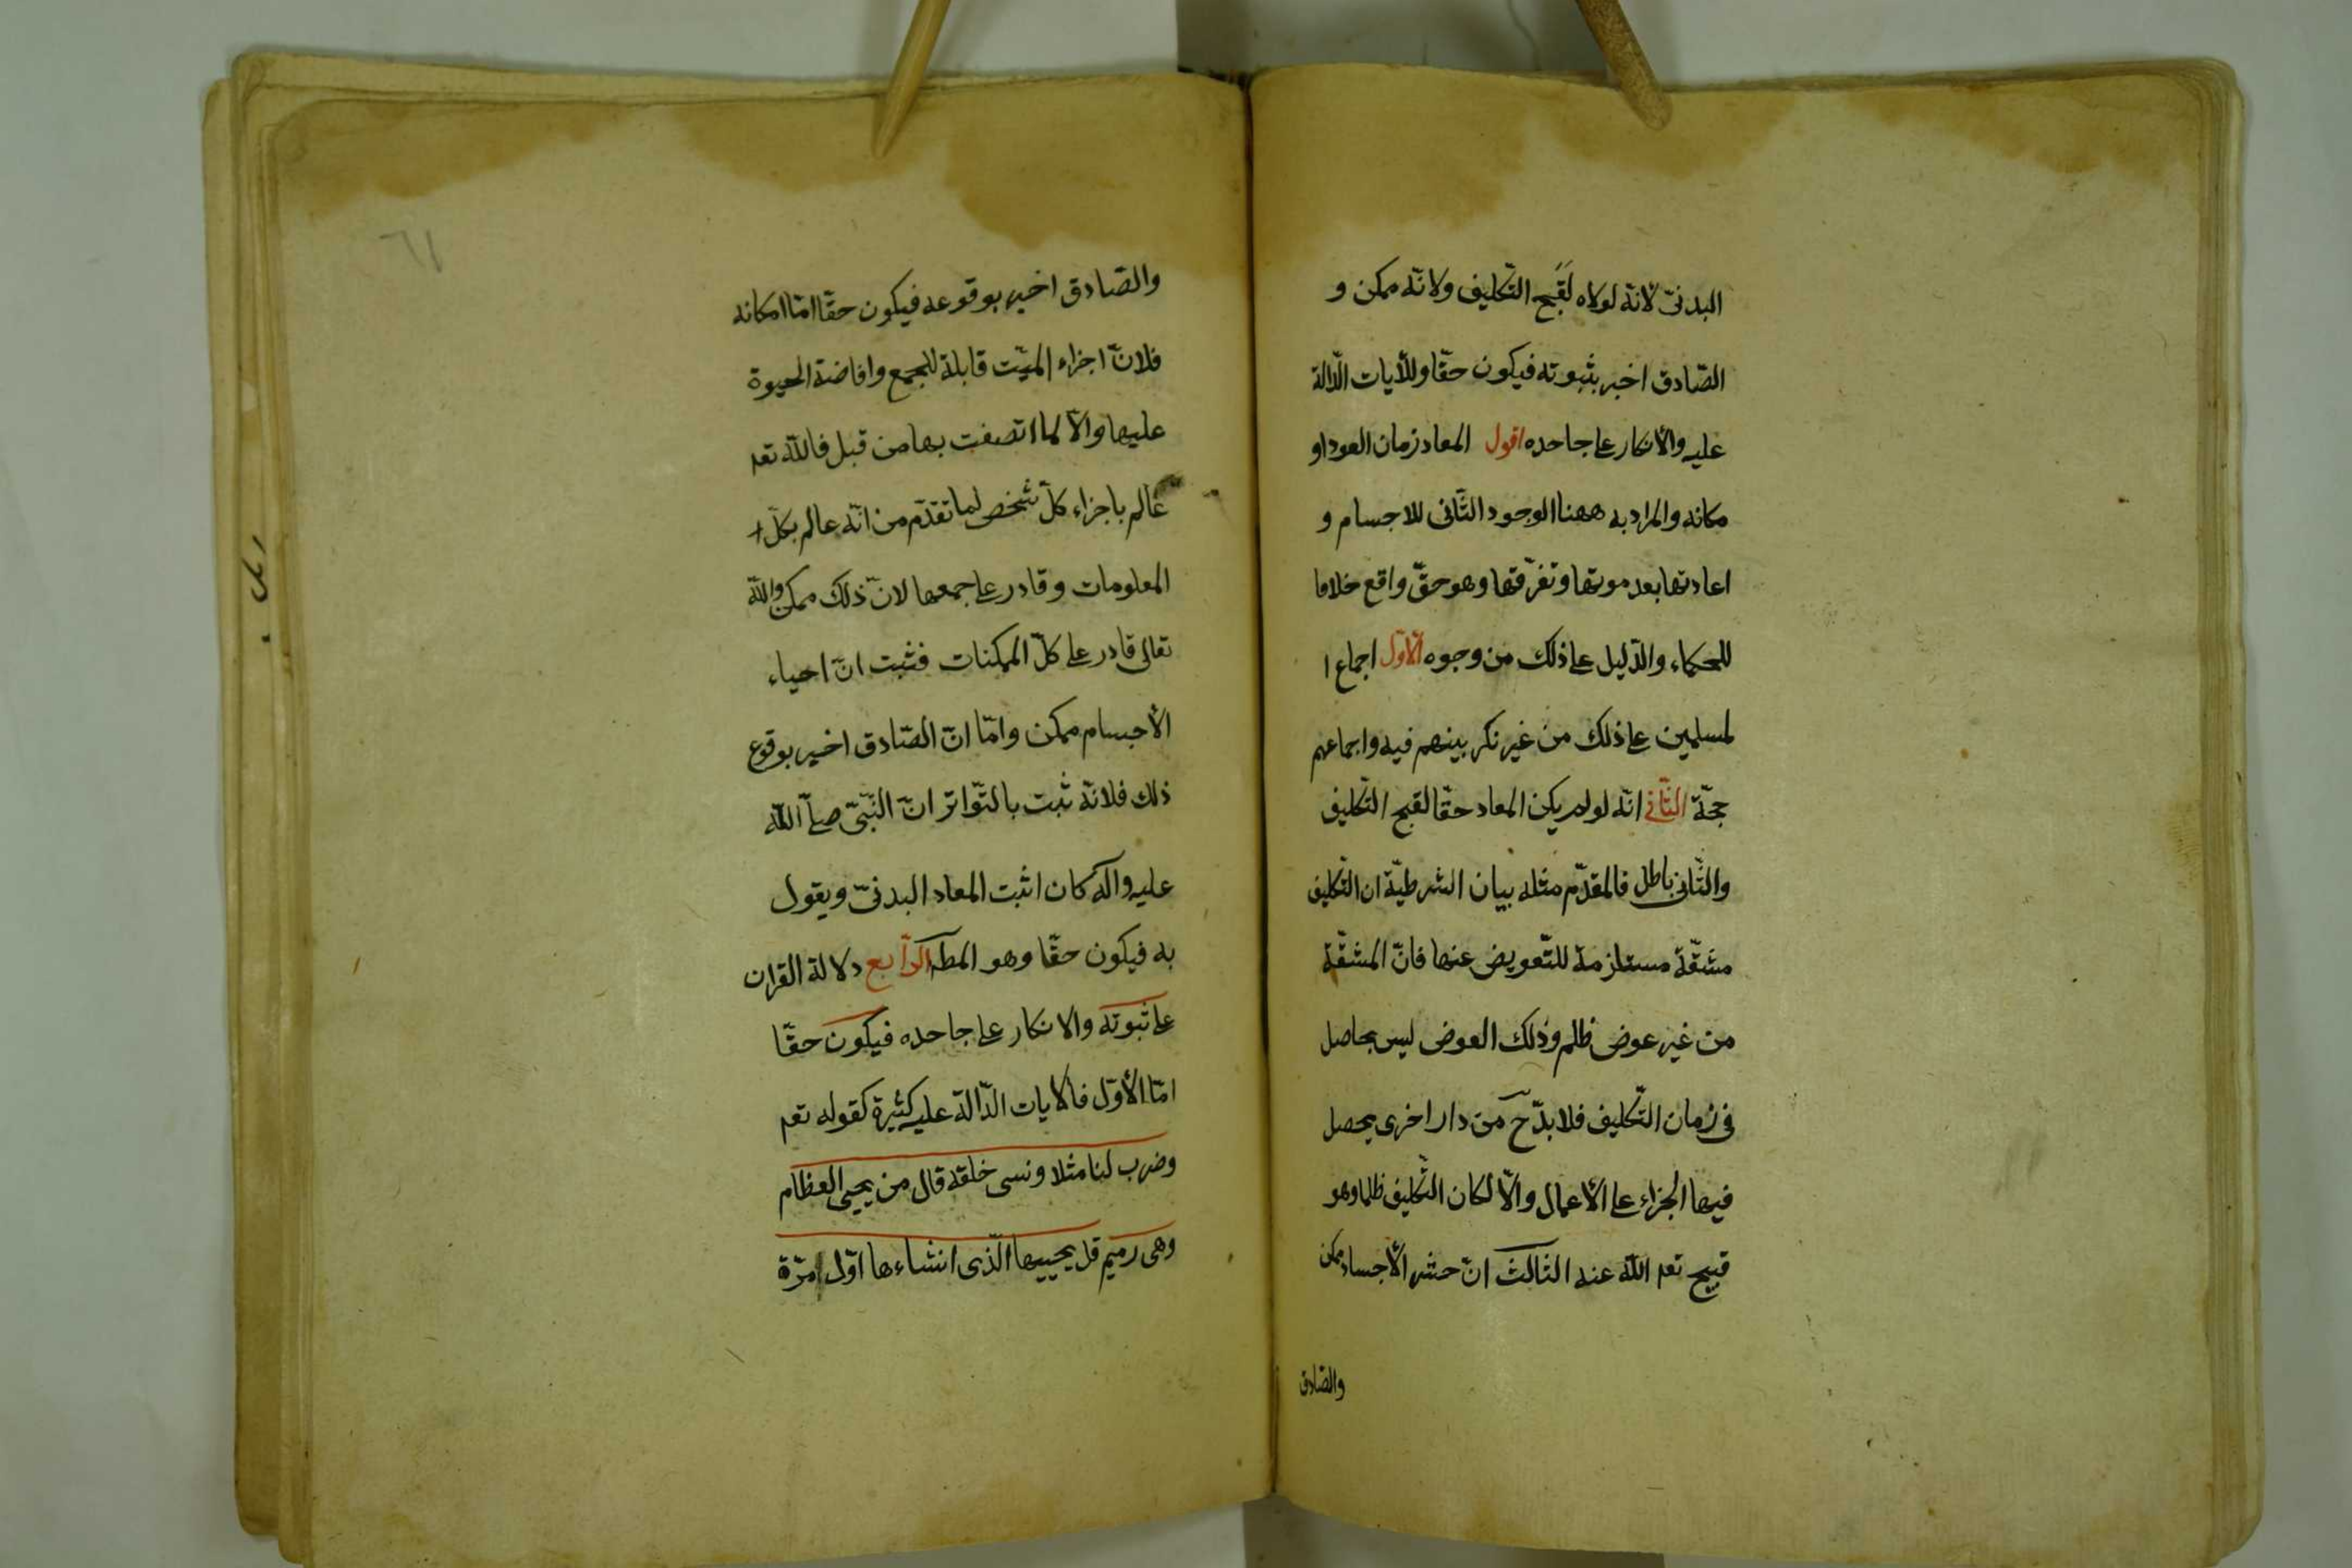 البدنیّ لانّه لولاه لَقَبح التّكليف ولانّه ممكن و
الصّادق اخبر بثبوته فيكون حقّا وللأيات الدّالة
عليه والأنكار على جاحده اقول المعاد زمان العود او
مكانه والمراد به ههنا الوجود الثّانى للاجسام و
اعادتها بعد موتها وتفرّقها وهو حقّ واقع خلافا
للحكماء والدّليل على ذلك من وجوه الأوّل اجماع ا
لمسلمين على ذلك من غير نكر بينهم فيه واجماعهم
حجّة الثّانى انّه لو لم يكن المعاد حقّا لقبح التّكليف
والثّانى باطل فالمقدّم مثله بيان الشرطيّة ان التّكليف
مشقّة مستلزمة للتّعويض عنها فانّ المشقّة
من غير عوض ظلم وذلك العوض ليس بحاصل
فى زمان التّكليف فلا بدّ ح من دار اخرى يحصل
فيها الجزاء على الأعمال والّا لكان التّكليف ظلما وهو
قبيح تعه اللّه عنه الثالث انّ حشر الأجساد ممكن
والصّادق
٦١
والصّادق اخبر بوقوعه فيكون حقّا امّا امكانه
فلانّ اجزاء الميّت قابلة للجمع وافاضة الحيوة
عليها والّا لما اتصفت بها من قبل فاللّه تعه
عالم باجزاء كلّ شخص لما تقدّم من انّه عالم بكلّ
المعلومات وقادر على جمعها لانّ ذلك ممكن واللّه
تعالى قادر على كلّ الممكنات فثبت انّ احياء
الأجسام ممكن وامّا انّ الصّادق اخبر بوقوع
ذلك فلانّه ثبت بالتّواتر انّ النّبّى صلّى اللّه
عليه وآله كان اثبت المعاد البدنیّ ويقول
به فيكون حقّا وهو المطه الرّابع دلالة القران
على ثبوته والانكار على جاحده فيكون حقّا
امّا الأوّل فالايات الدّالة عليه كثيرة كقوله تعه
وضرب لنا مثلا ونسى خلقه قال من يحيى العظام
وهى رميم قل يحييها الّذى انشاءها اوّل مرّة